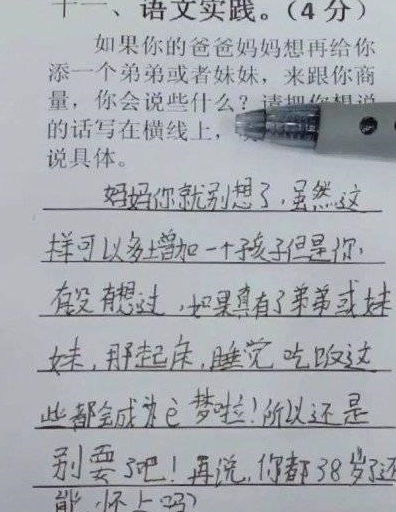 十一、语文实践。(4分)
如果你的爸爸妈妈想再给你
添一个弟弟或者妹妹，来跟你商
量，你会说些什么？请把你想说
的话写在横线上，
说具体。
妈妈你就别想了，虽然这
样可以多增加一个孩子但是你，
有没有想过，如果真有了弟弟或妹
妹，那起床，睡觉吃饭这
些都会成为它梦啦！所以还是
别要了吧！再说，你都38岁了还
能怀上吗?